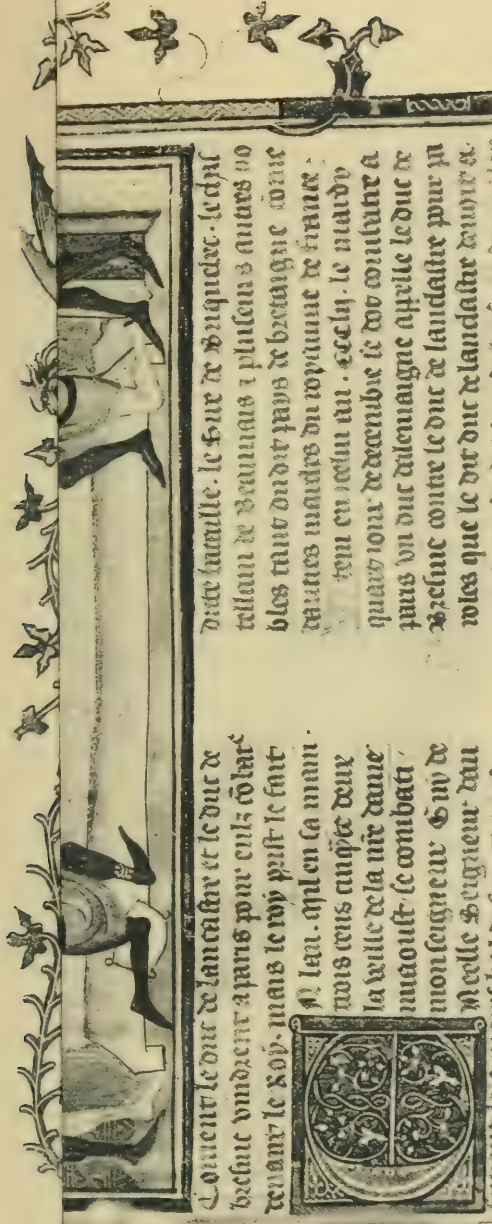 Coment le duc de lancastre et le duc de
bresuic vindrent a paris pour eulz cōbatre
deuant le Roy. mais le roy prist le fait
N lan. mil en sa main.
trois cens cinqte deux
la veille de la nre dame
miaoust. se combati
monseigneur Guy de
Neelle Seigneur dau
dicte bataille. le Sire de Briquebec. le chas
tellain de Beauuais & pluseurs autres no
bles tant du dit pays de bretaigne cōme
dautres marches du royaume de france.
tem en icelui an. ccclij. le mardy
quart iour de decembre se dot combatre a
paris vn duc dalemaigne appelle le duc de
Bresuic contre le duc de lancastre pour pa
roles que le dit duc de lancastre deuoit a